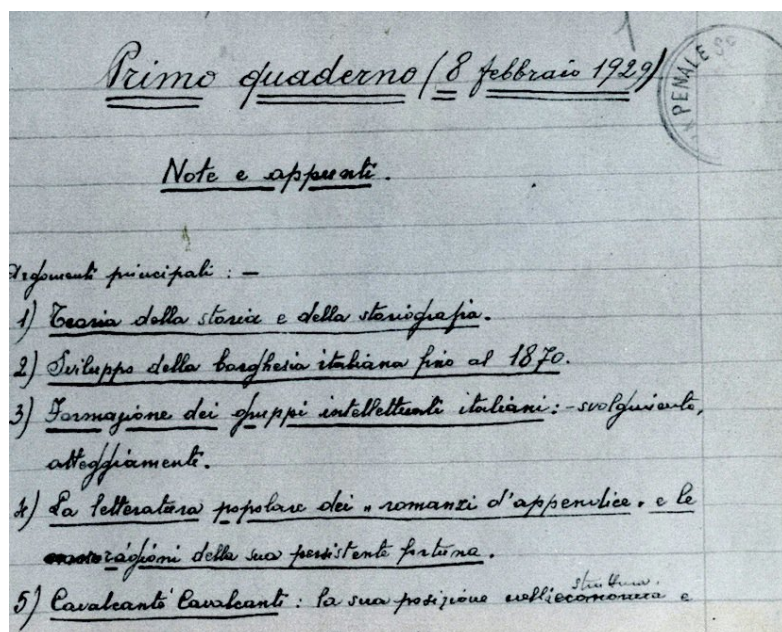 1
Primo quaderno (8 febbraio 1929)
PENALE
Note e appunti.
Argomenti principali: —
1) Teoria della storia e della storiografia.
2) Sviluppo della borghesia italiana fino al 1870.
3) Formazione dei gruppi intellettuali italiani: - svolgimento,
atteggiamenti.
4) La letteratura popolare dei „romanzi d'appendice" e le
ragioni della sua persistente fortuna.
struttura
5) Cavalcante Cavalcanti: la sua posizione nell'economia e